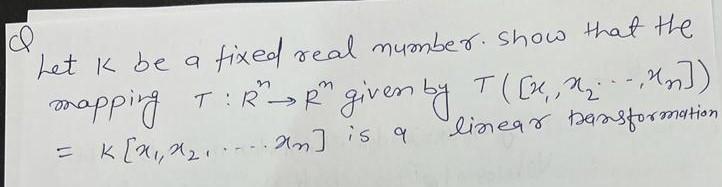 Q
Let K be a fixed real number. Show that the
mapping T : Rⁿ → Rⁿ given by T([x₁, x₂ ..., xₙ])
= K[x₁, x₂, ..... xₙ] is a linear transformation